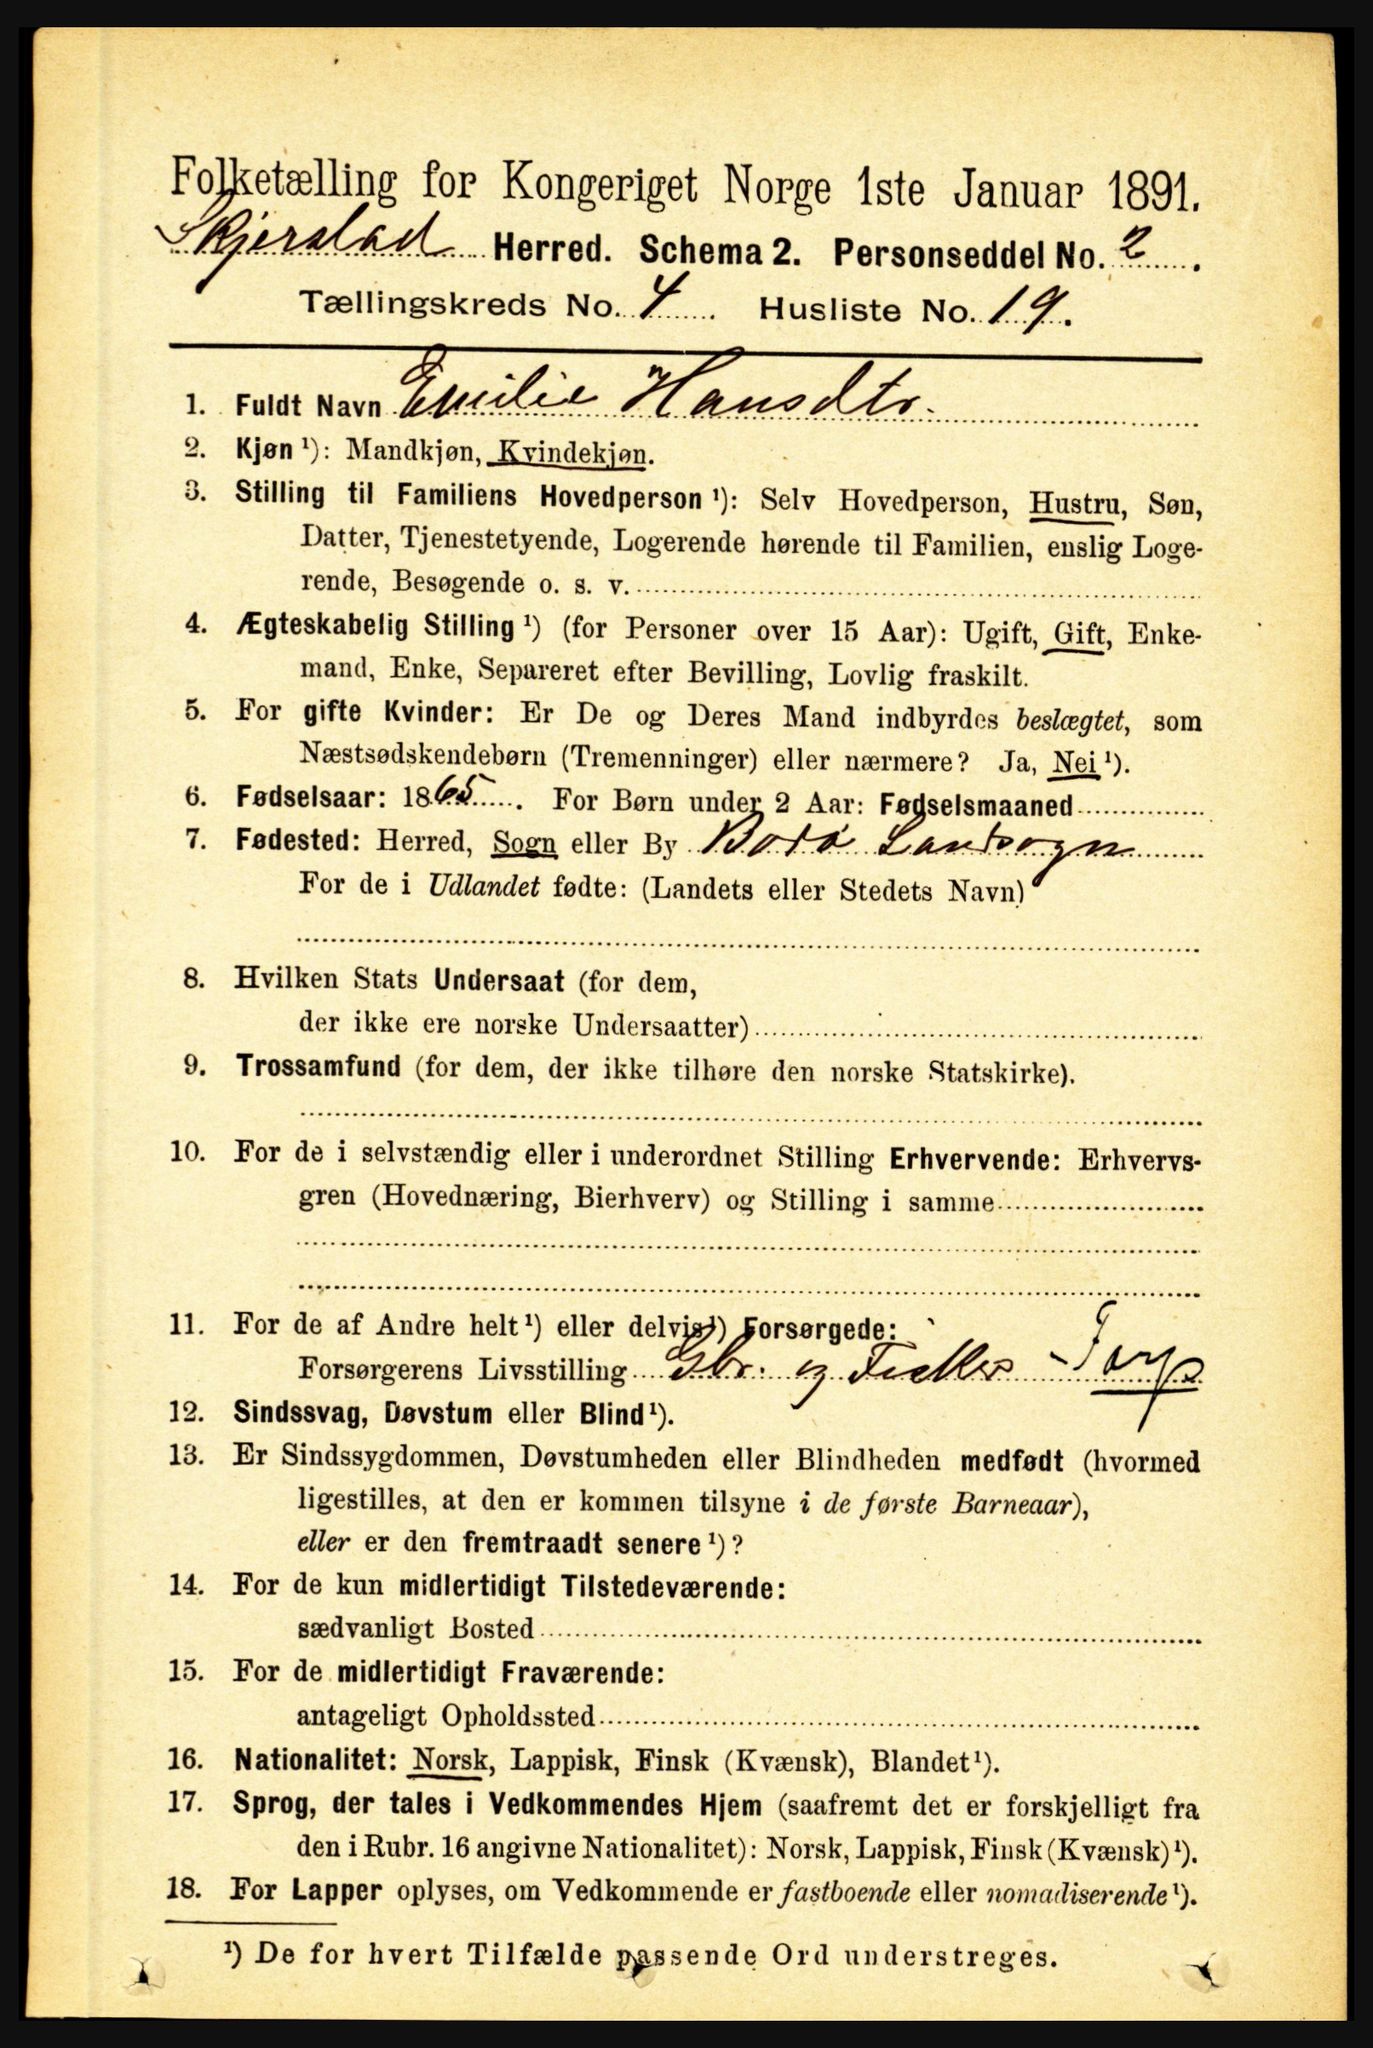 Folketælling for Kongeriget Norge 1ste Januar 1891.
Skjerstad Herred. Schema 2. Personseddel No. 2.
Tællingskreds No. 4. Husliste No. 19.
1. Fuldt Navn Emilie Hansdtr.
2. Kjøn ¹): Mandkjøn, Kvindekjøn.
3. Stilling til Familiens Hovedperson ¹): Selv Hovedperson, Hustru, Søn,
Datter, Tjenestetyende, Logerende hørende til Familien, enslig Loge-
rende, Besøgende o. s. v.
4. Ægteskabelig Stilling ¹) (for Personer over 15 Aar): Ugift, Gift, Enke-
mand, Enke, Separeret efter Bevilling, Lovlig fraskilt.
5. For gifte Kvinder: Er De og Deres Mand indbyrdes beslægtet, som
Næstsødskendebørn (Tremenninger) eller nærmere? Ja, Nei ¹).
6. Fødselsaar: 1865. For Børn under 2 Aar: Fødselsmaaned
7. Fødested: Herred, Sogn eller By Bodø Landsogn
For de i Udlandet fødte: (Landets eller Stedets Navn)
8. Hvilken Stats Undersaat (for dem,
der ikke ere norske Undersaatter)
9. Trossamfund (for dem, der ikke tilhøre den norske Statskirke).
10. For de i selvstændig eller i underordnet Stilling Erhvervende: Erhvervs-
gren (Hovednæring, Bierhverv) og Stilling i samme
11. For de af Andre helt ¹) eller delvis ¹) Forsørgede:
Forsørgerens Livsstilling Gbr. og
12. Sindssvag, Døvstum eller Blind ¹).
13. Er Sindssygdommen, Døvstumheden eller Blindheden medfødt (hvormed
ligestilles, at den er kommen tilsyne i de første Barneaar),
eller er den fremtraadt senere ¹)?
14. For de kun midlertidigt Tilstedeværende:
sædvanligt Bosted
15. For de midlertidigt Fraværende:
antageligt Opholdssted
16. Nationalitet: Norsk, Lappisk, Finsk (Kvænsk), Blandet ¹).
17. Sprog, der tales i Vedkommendes Hjem (saafremt det er forskjelligt fra
den i Rubr. 16 angivne Nationalitet): Norsk, Lappisk, Finsk (Kvænsk) ¹).
18. For Lapper oplyses, om Vedkommende er fastboende eller nomadiserende ¹).
¹) De for hvert Tilfælde passende Ord understreges.